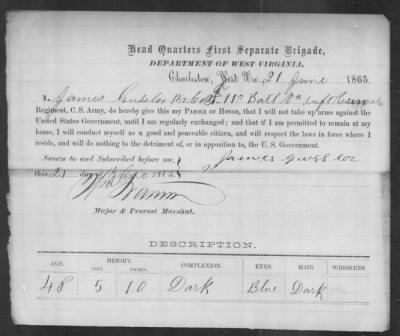 Head Quarters First Separate Brigade,
DEPARTMENT OF WEST VIRGINIA.
Charleston, West Va. 21 June 1865.
I, James 11th Batt Va Reserves
Regiment, C. S. Army, do hereby give this my PAROLE OF HONOR, that I will not take up arms against the
United States Government, until I am regularly exchanged; and that if I am permitted to remain at my
home, I will conduct myself as a good and peaceable citizen, and will respect the laws in force where I
reside, and will do nothing to the detriment of, or in opposition to, the U. S. Government.
Sworn to and Subscribed before me,
James
this 21 day of
Major & Provost Marshal.
DESCRIPTION.
AGE. HEIGHT. COMPLEXION. EYES. HAIR. WHISKERS.
FEET. INCHES.
48 5 10 Dark Blue Dark